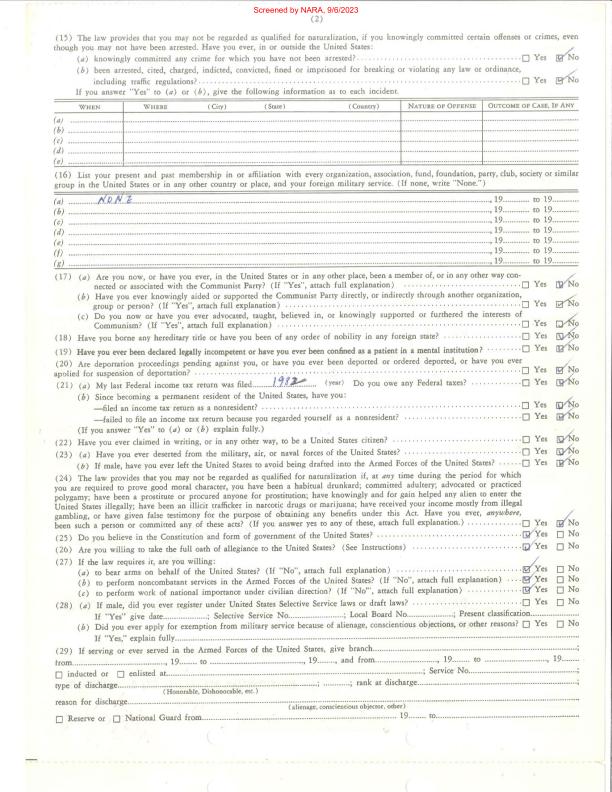 Screened by NARA, 9/6/2023
(2)
(15) The law provides that you may not be regarded as qualified for naturalization, if you knowingly committed certain offenses or crimes, even
though you may not have been arrested. Have you ever, in or outside the United States:
(a) knowingly committed any crime for which you have not been arrested? ☐ Yes ☑ No
(b) been arrested, cited, charged, indicted, convicted, fined or imprisoned for breaking or violating any law or ordinance,
including traffic regulations? ☐ Yes ☑ No
If you answer "Yes" to (a) or (b), give the following information as to each incident.
WHEN WHERE (City) (State) (Country) NATURE OF OFFENSE OUTCOME OF CASE, IF ANY
(a)
(b)
(c)
(d)
(e)
(16) List your present and past membership in or affiliation with every organization, association, fund, foundation, party, club, society or similar
group in the United States or in any other country or place, and your foreign military service. (If none, write "None.")
(a) NONE , 19 to 19
(b) , 19 to 19
(c) , 19 to 19
(d) , 19 to 19
(e) , 19 to 19
(f) , 19 to 19
(g) , 19 to 19
(17) (a) Are you now, or have you ever, in the United States or in any other place, been a member of, or in any other way con-
nected or associated with the Communist Party? (If "Yes", attach full explanation) ☐ Yes ☑ No
(b) Have you ever knowingly aided or supported the Communist Party directly, or indirectly through another organization,
group or person? (If "Yes", attach full explanation) ☐ Yes ☑ No
(c) Do you now or have you ever advocated, taught, believed in, or knowingly supported or furthered the interests of
Communism? (If "Yes", attach full explanation) ☐ Yes ☑ No
(18) Have you borne any hereditary title or have you been of any order of nobility in any foreign state? ☐ Yes ☑ No
(19) Have you ever been declared legally incompetent or have you ever been confined as a patient in a mental institution? ☐ Yes ☑ No
(20) Are deportation proceedings pending against you, or have you ever been deported or ordered deported, or have you ever
applied for suspension of deportation? ☐ Yes ☑ No
(21) (a) My last Federal income tax return was filed 1982 (year) Do you owe any Federal taxes? ☐ Yes ☑ No
(b) Since becoming a permanent resident of the United States, have you:
—filed an income tax return as a nonresident? ☐ Yes ☑ No
—failed to file an income tax return because you regarded yourself as a nonresident? ☐ Yes ☑ No
(If you answer "Yes" to (a) or (b) explain fully.)
(22) Have you ever claimed in writing, or in any other way, to be a United States citizen? ☐ Yes ☑ No
(23) (a) Have you ever deserted from the military, air, or naval forces of the United States? ☐ Yes ☑ No
(b) If male, have you ever left the United States to avoid being drafted into the Armed Forces of the United States? ☐ Yes ☑ No
(24) The law provides that you may not be regarded as qualified for naturalization if, at any time during the period for which
you are required to prove good moral character, you have been a habitual drunkard; committed adultery; advocated or practiced
polygamy; have been a prostitute or procured anyone for prostitution; have knowingly and for gain helped any alien to enter the
United States illegally; have been an illicit trafficker in narcotic drugs or marijuana; have received your income mostly from illegal
gambling, or have given false testimony for the purpose of obtaining any benefits under this Act. Have you ever, anywhere,
been such a person or committed any of these acts? (If you answer yes to any of these, attach full explanation.) ☐ Yes ☑ No
(25) Do you believe in the Constitution and form of government of the United States? ☑ Yes ☐ No
(26) Are you willing to take the full oath of allegiance to the United States? (See Instructions) ☑ Yes ☐ No
(27) If the law requires it, are you willing:
(a) to bear arms on behalf of the United States? (If "No", attach full explanation) ☑ Yes ☐ No
(b) to perform noncombatant services in the Armed Forces of the United States? (If "No", attach full explanation) ☑ Yes ☐ No
(c) to perform work of national importance under civilian direction? (If "No", attach full explanation) ☑ Yes ☐ No
(28) (a) If male, did you ever register under United States Selective Service laws or draft laws? ☐ Yes ☐ No
If "Yes" give date; Selective Service No.; Local Board No.; Present classification
(b) Did you ever apply for exemption from military service because of alienage, conscientious objections, or other reasons? ☐ Yes ☐ No
If "Yes," explain fully
(29) If serving or ever served in the Armed Forces of the United States, give branch;
from, 19 to, 19, and from, 19 to, 19;
☐ inducted or ☐ enlisted at; Service No.;
type of discharge; ; rank at discharge;
(Honorable, Dishonorable, etc.)
reason for discharge
(alienage, conscientious objector, other)
☐ Reserve or ☐ National Guard from 19 to